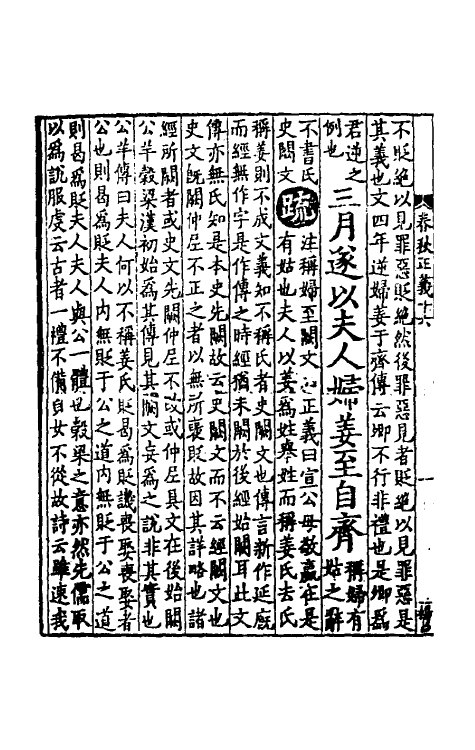 不貶絕以見罪惡貶絕然後罪惡見者貶絕以見罪惡是
其義也文四年逆婦姜于齊傳云卿不行非禮也是卿爲
君逆之
例也
三月遂以夫人婦姜至自齊
稱婦有
姑之辭
不書氏
史闕文
疏
注稱婦至闕文
正義曰宣公母敬嬴在是
有姑也夫人以姜爲姓舉姓而稱姜氏去氏
稱姜則不成文義知不稱氏者史闕文也傳言新作延廐
而經無作字是作傳之時經猶未闕於後經始闕耳此文
傳亦無氏知是本史先闕故云史闕文而不云經闕文也
史文旣闕仲尼不正之者以無所褒貶故因其詳略也諸
經所闕者或史文先闕仲尼不改或仲尼具文在後始闕
公羊穀梁漢初始爲其傳見其闕文妄爲之說非其實也
公羊傳曰夫人何以不稱姜氏貶曷爲貶譏喪娶喪娶者
公也則曷爲貶夫人內無貶于公之道內無貶于公之道
則曷爲貶夫人夫人與公一體也穀梁之意亦然先儒取
以爲說服虔云古者一禮不備貞女不從故詩云雖速我
春秋正義十六
一